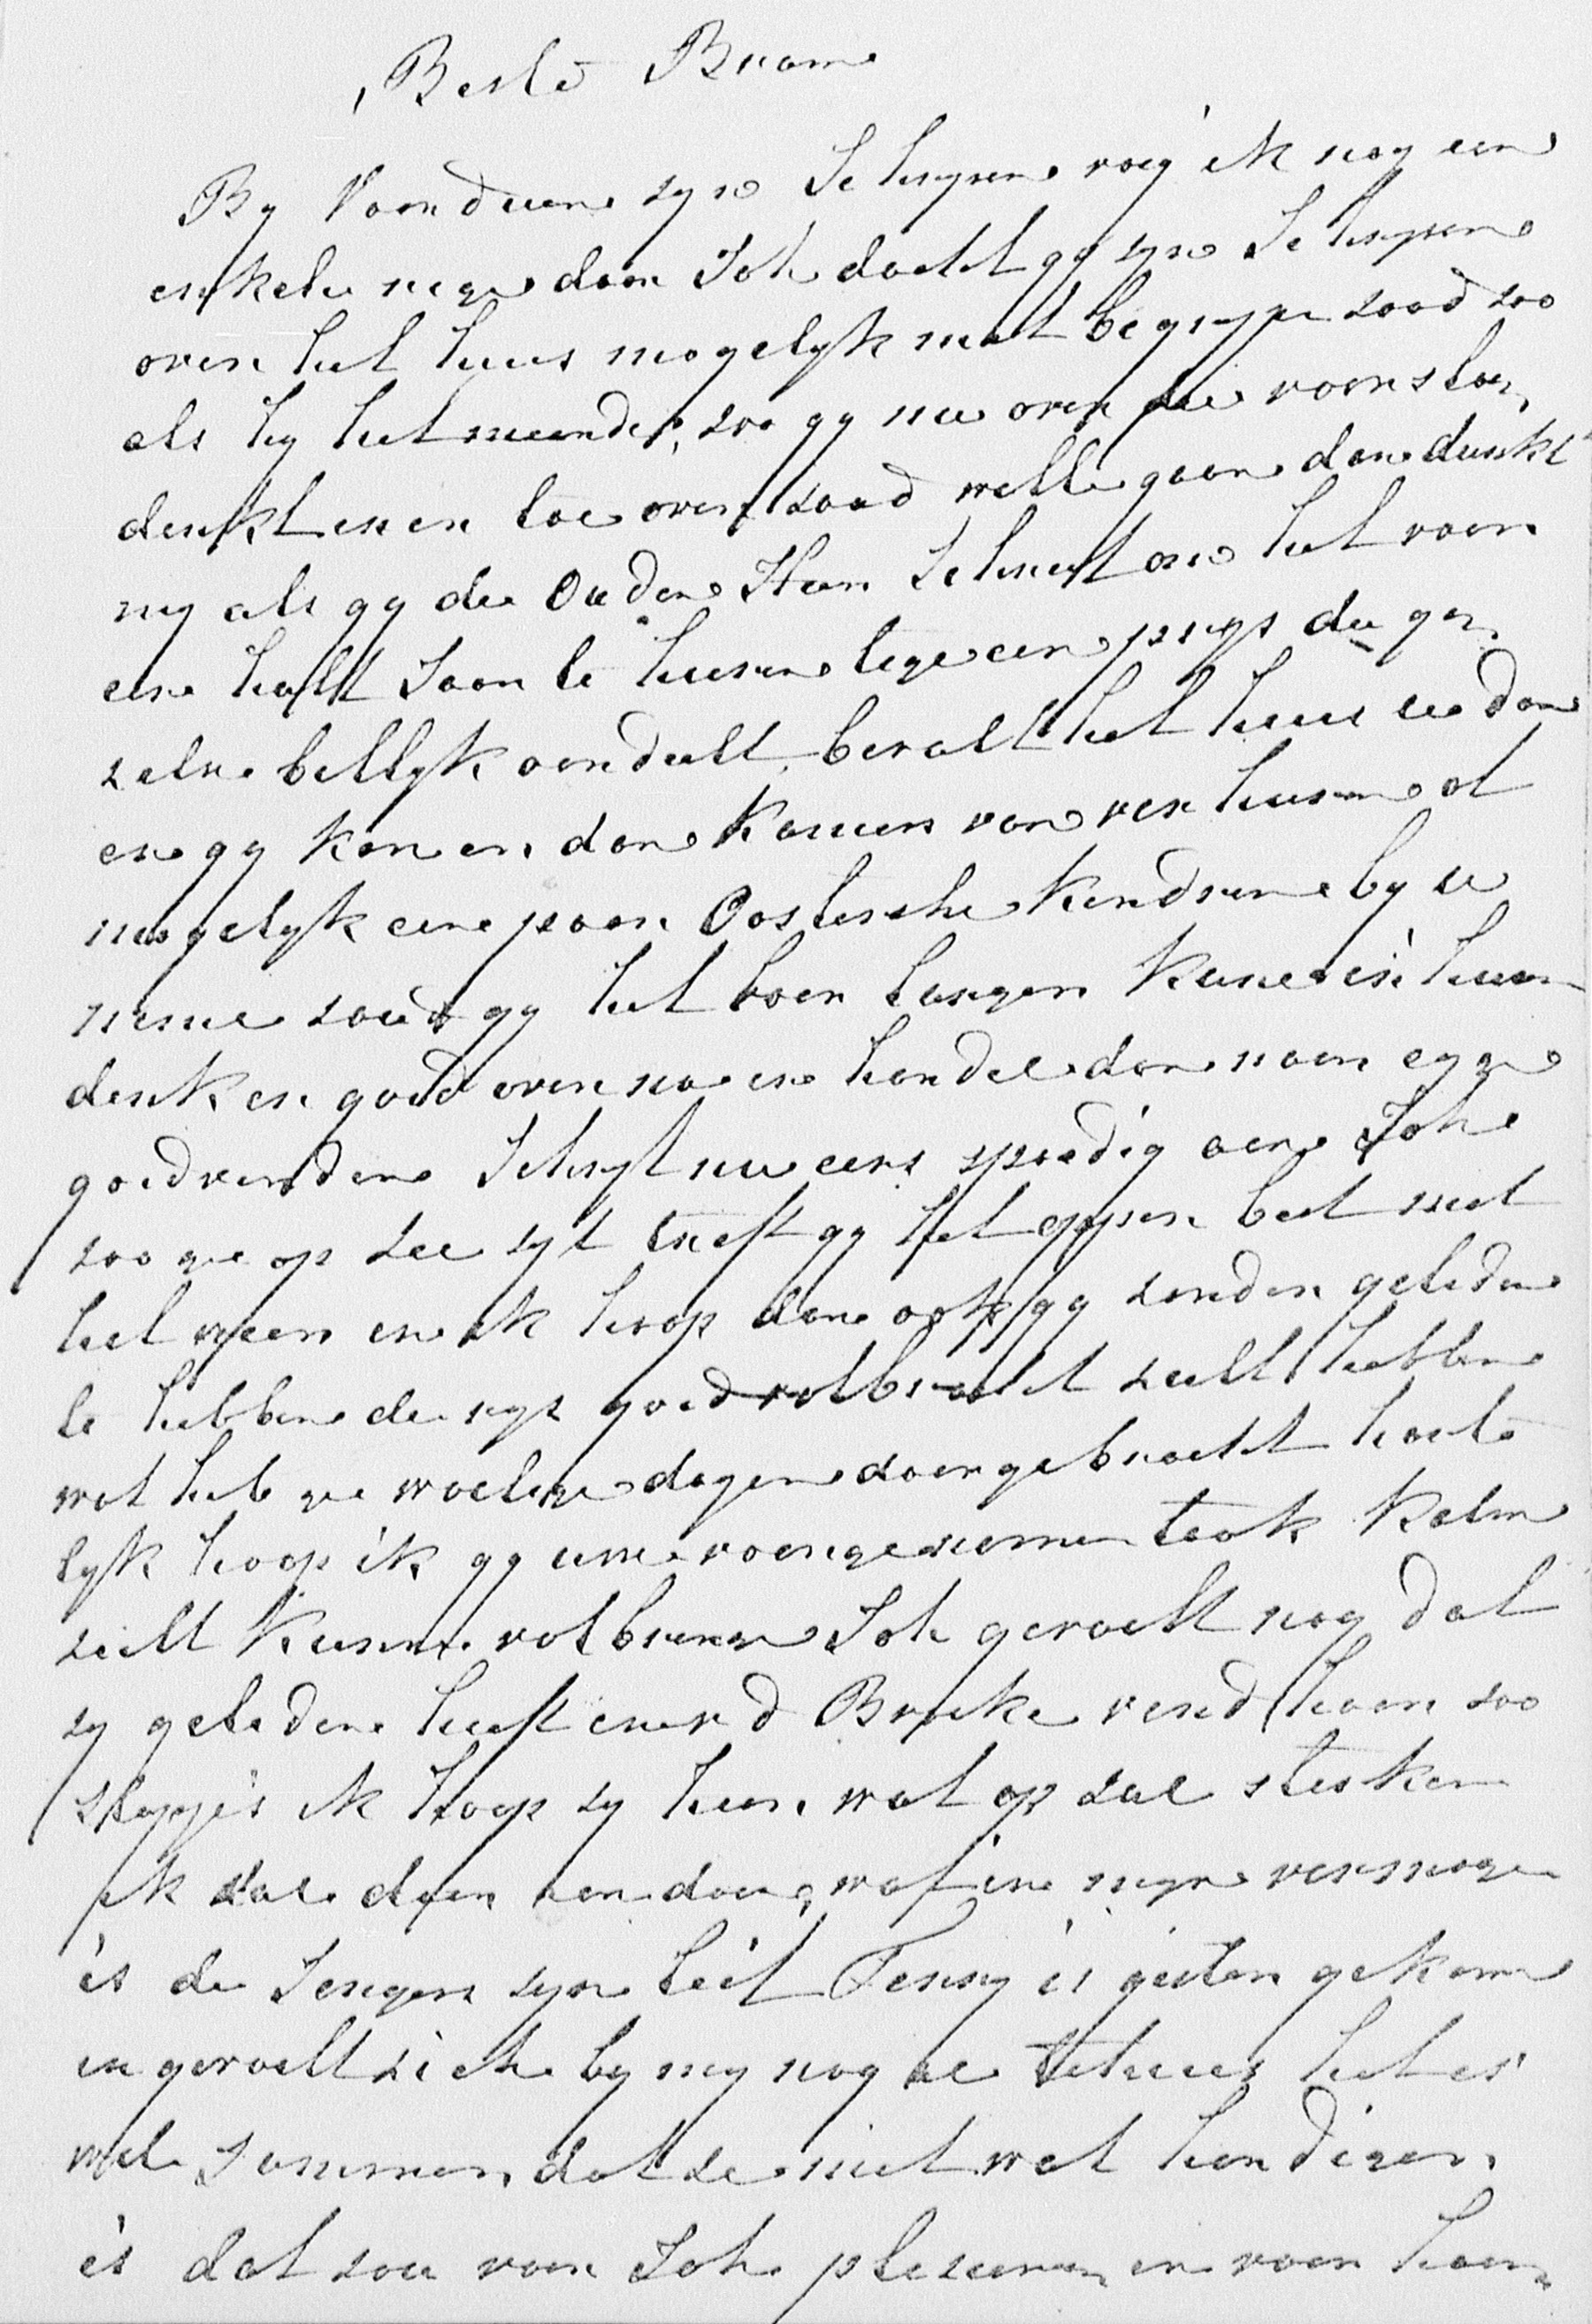 Beste Bram
By Vaandeen zyn Schryven voeg ik nog een
enkele rege daar Joh dacht gy zyn Schryven
over het huis mogelyk niet begrype zoud zoo
als hy het meende, zoo gy nu over die voorstee
denkt en er toe over zoud wille gaan dan dunkt
my als gy de Ouden Heer Schreef om het voor
een half Jaar te huren tege een prys die gy
zelve billyk oordeelt, bevalt het huis u dan
en gy kon er dan kamers van verhuren of
mogelyk een paar Oostersche kinderen by u
neme zoud gy het voor langer kunne in huur
denk er goed over na en handel dan naar eyge
goedvinden Schryf nu eens spoedig aan Joh
zoo ge op zee zyt treft gy het eppen best met
het weer en ik hoop dan ook gy zonder gelede
te hebben de reys goed volbracht zult hebben
wat heb ge woelige dagen doorgebracht harte
lyk hoop ik gy uwe voorgenomen taak kalm
zult kunne volbrenge Joh gevoelt nog dat
zy geleden heeft en v d Broeke vind haar zoo
stilletjes ik hoop zy hier wat op zal steken
ik zal daar aan doen wat in myn vermoge
is de Jongen zyn lief Fenny is gister gekome
en gevoelt zich by my nog al tehuis het is
wel Jammer dat ze niet wat handiger
is dat zou voor Joh pleizierig en voor haar